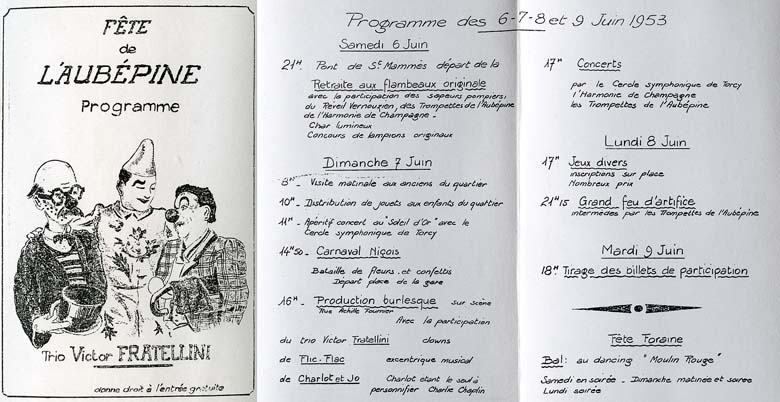 FÊTE
de
L'AUBÉPINE
Programme
Trio Victor FRATELLINI
donne droit à l'entrée gratuite
Programme des 6-7-8 et 9 Juin 1953
Samedi 6 Juin
21H. Pont de St Mammès départ de la
Retraite aux flambeaux originale
avec la participation des sapeurs pompiers,
du Réveil Vernouzien, des Trompettes de l'Aubépine
de l'Harmonie de Champagne -
Char lumineux
Concours de lampions originaux
Dimanche 7 Juin
8H - Visite matinale aux anciens du quartier
10H - Distribution de jouets aux enfants du quartier
11H - Apéritif concert au "Soleil d'Or" avec le
Cercle symphonique de Torcy
14H30 - Carnaval Niçois
Bataille de fleurs et confettis
Départ place de la gare
16H - Production burlesque sur scène
Rue Achille Fournier
Avec la participation
du trio Victor Fratellini clowns
de Flic-Flac excentrique musical
de Charlot et Jo Charlot étant le seul à
personnifier Charlie Chaplin
17H Concerts
par le Cercle symphonique de Torcy
l'Harmonie de Champagne
les Trompettes de l'Aubépine
Lundi 8 Juin
17H Jeux divers
inscriptions sur place
Nombreux prix
21H15 Grand feu d'artifice
intermèdes par les Trompettes de l'Aubépine
Mardi 9 Juin
18H Tirage des billets de participation
Fête Foraine
Bal: au dancing "Moulin Rouge"
Samedi en soirée - Dimanche matinée et soirée
Lundi soirée